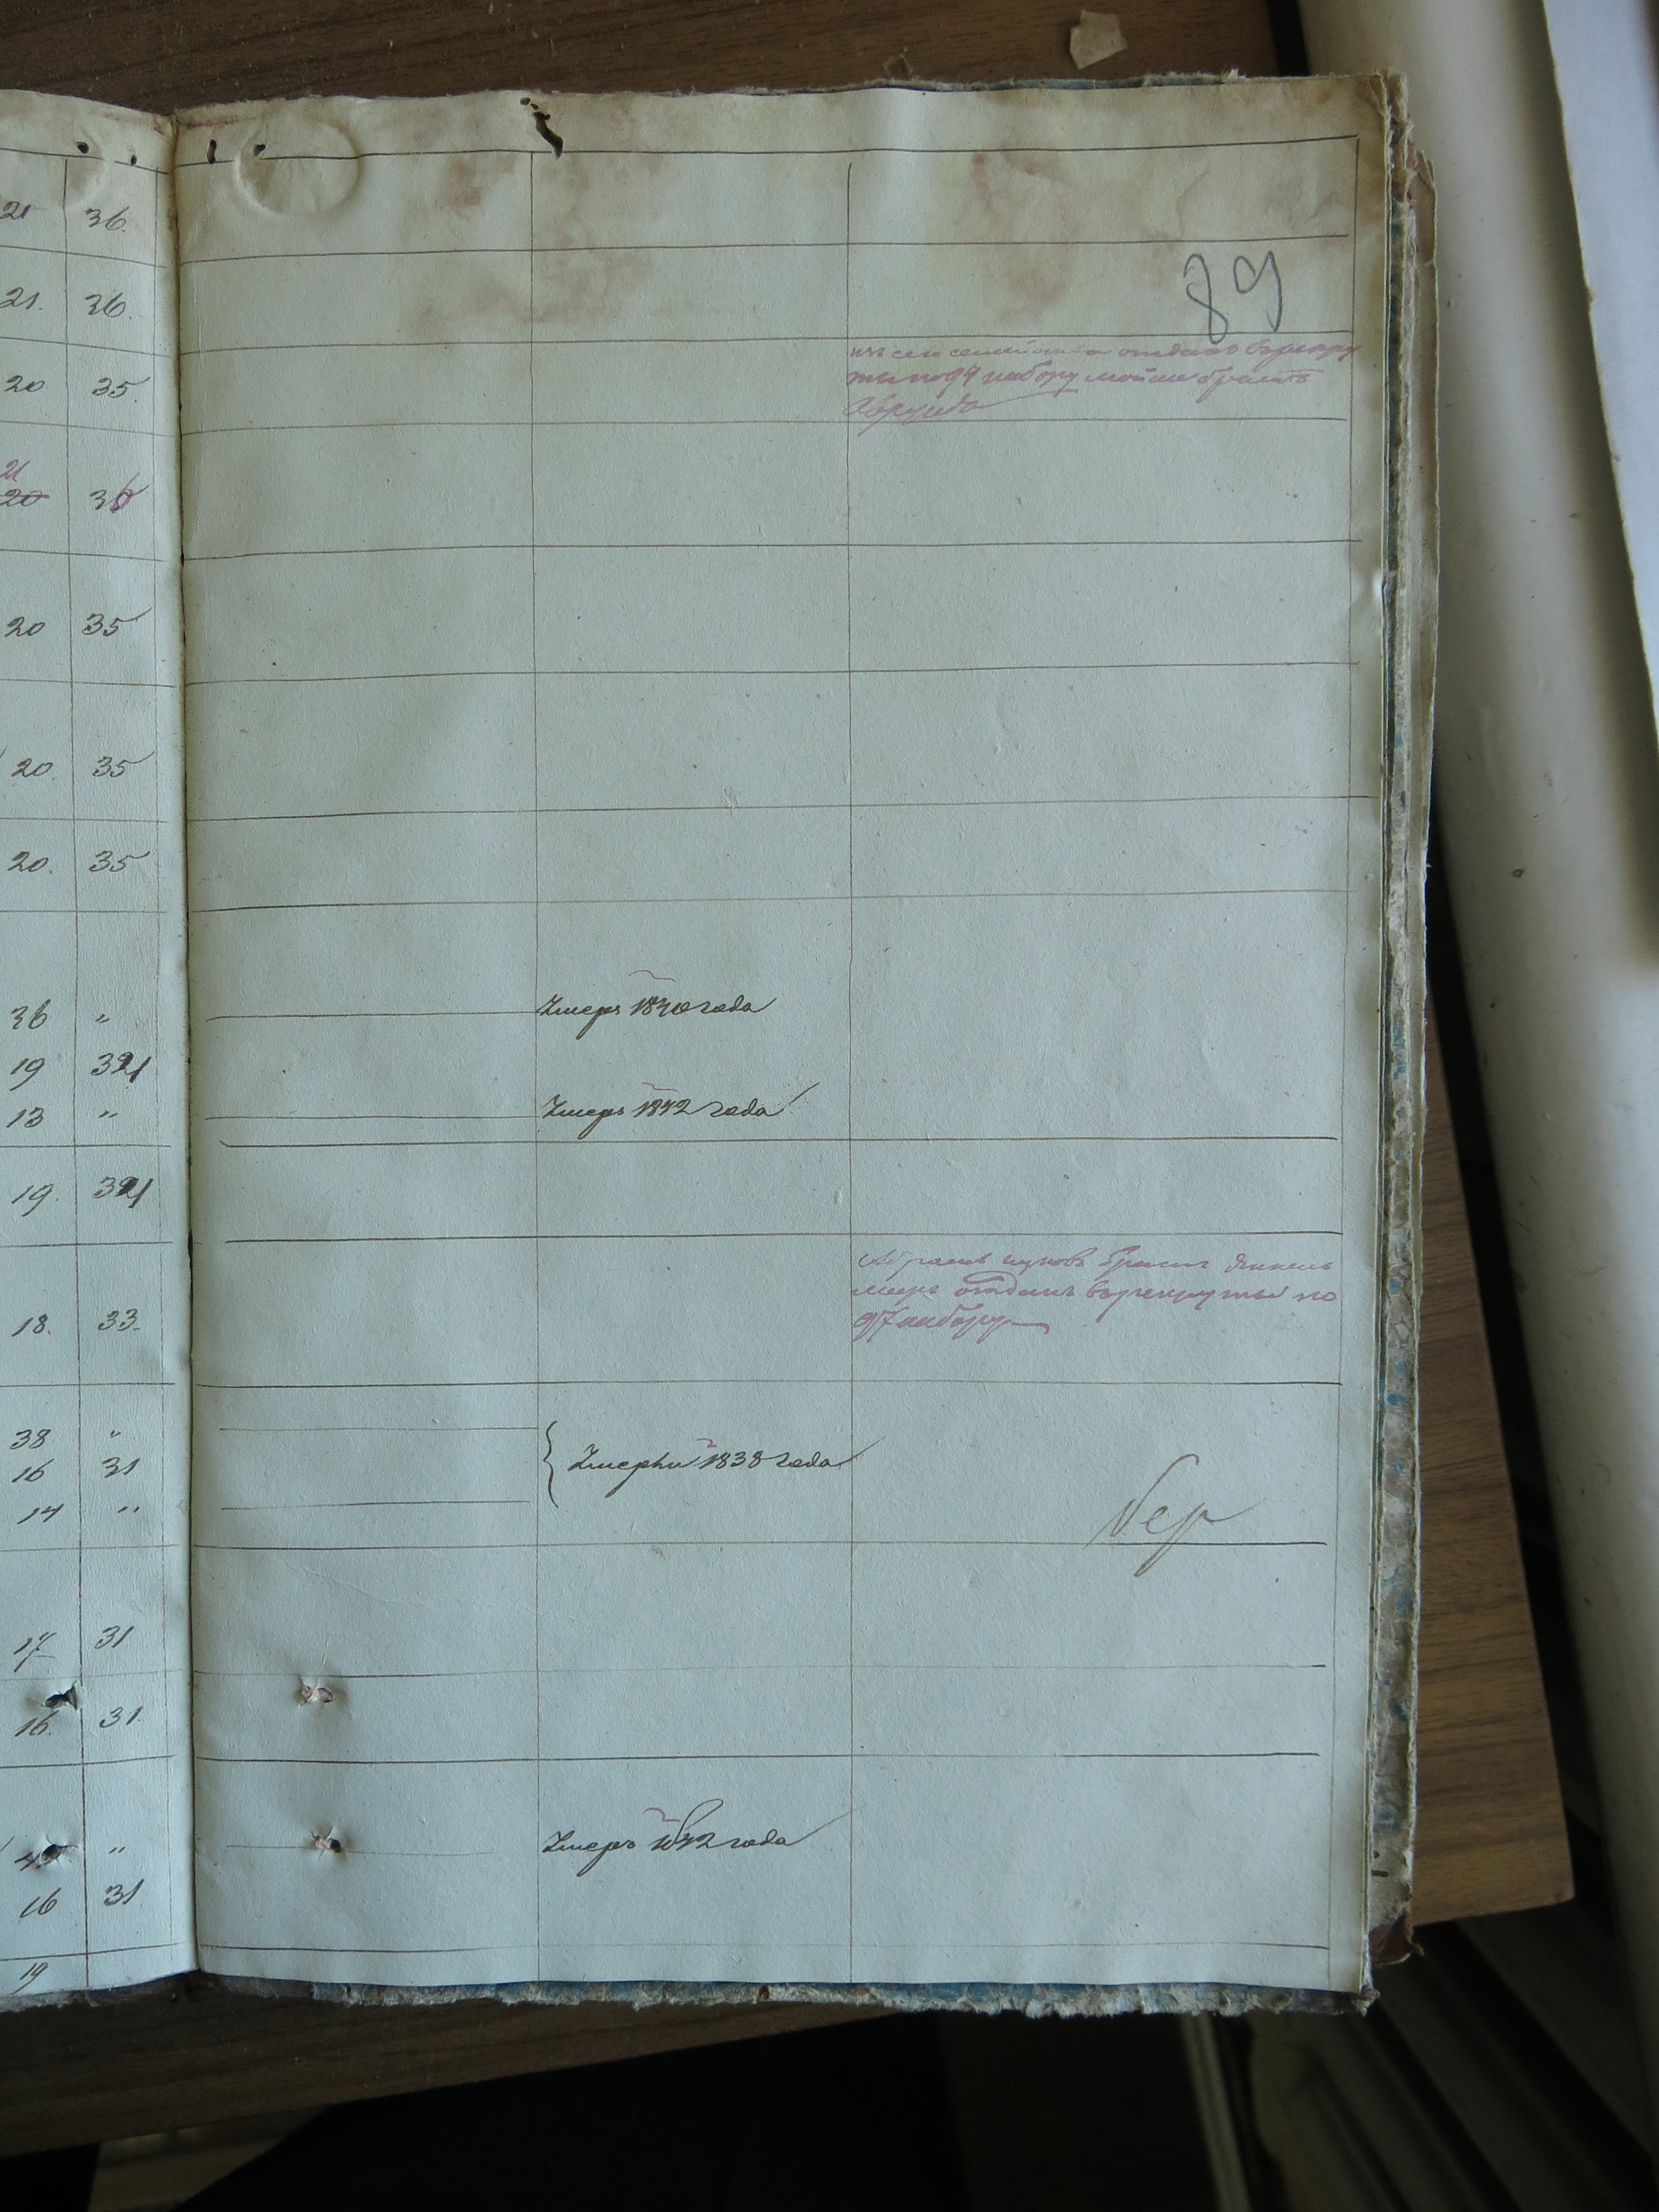 21 36.
21. 36.
89
20 35.
изъ сего семейства отданъ врекру
ты по 94 набору
21
20 36
20 35
20. 35
20. 35
36 "
Умеръ 1840 года
19 321
13 "
Умеръ 1842 года
19. 321
братъ
меръ отданъ врекруты по
97 набору
18. 33.
38 "
16 31
Умерли 1838 года
14 "
17 31
16. 31.
"
Умеръ 1842 года
16 31
19